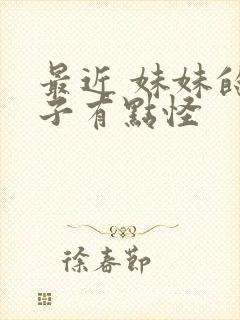 最近 妹妹的
子有點怪
徐春節